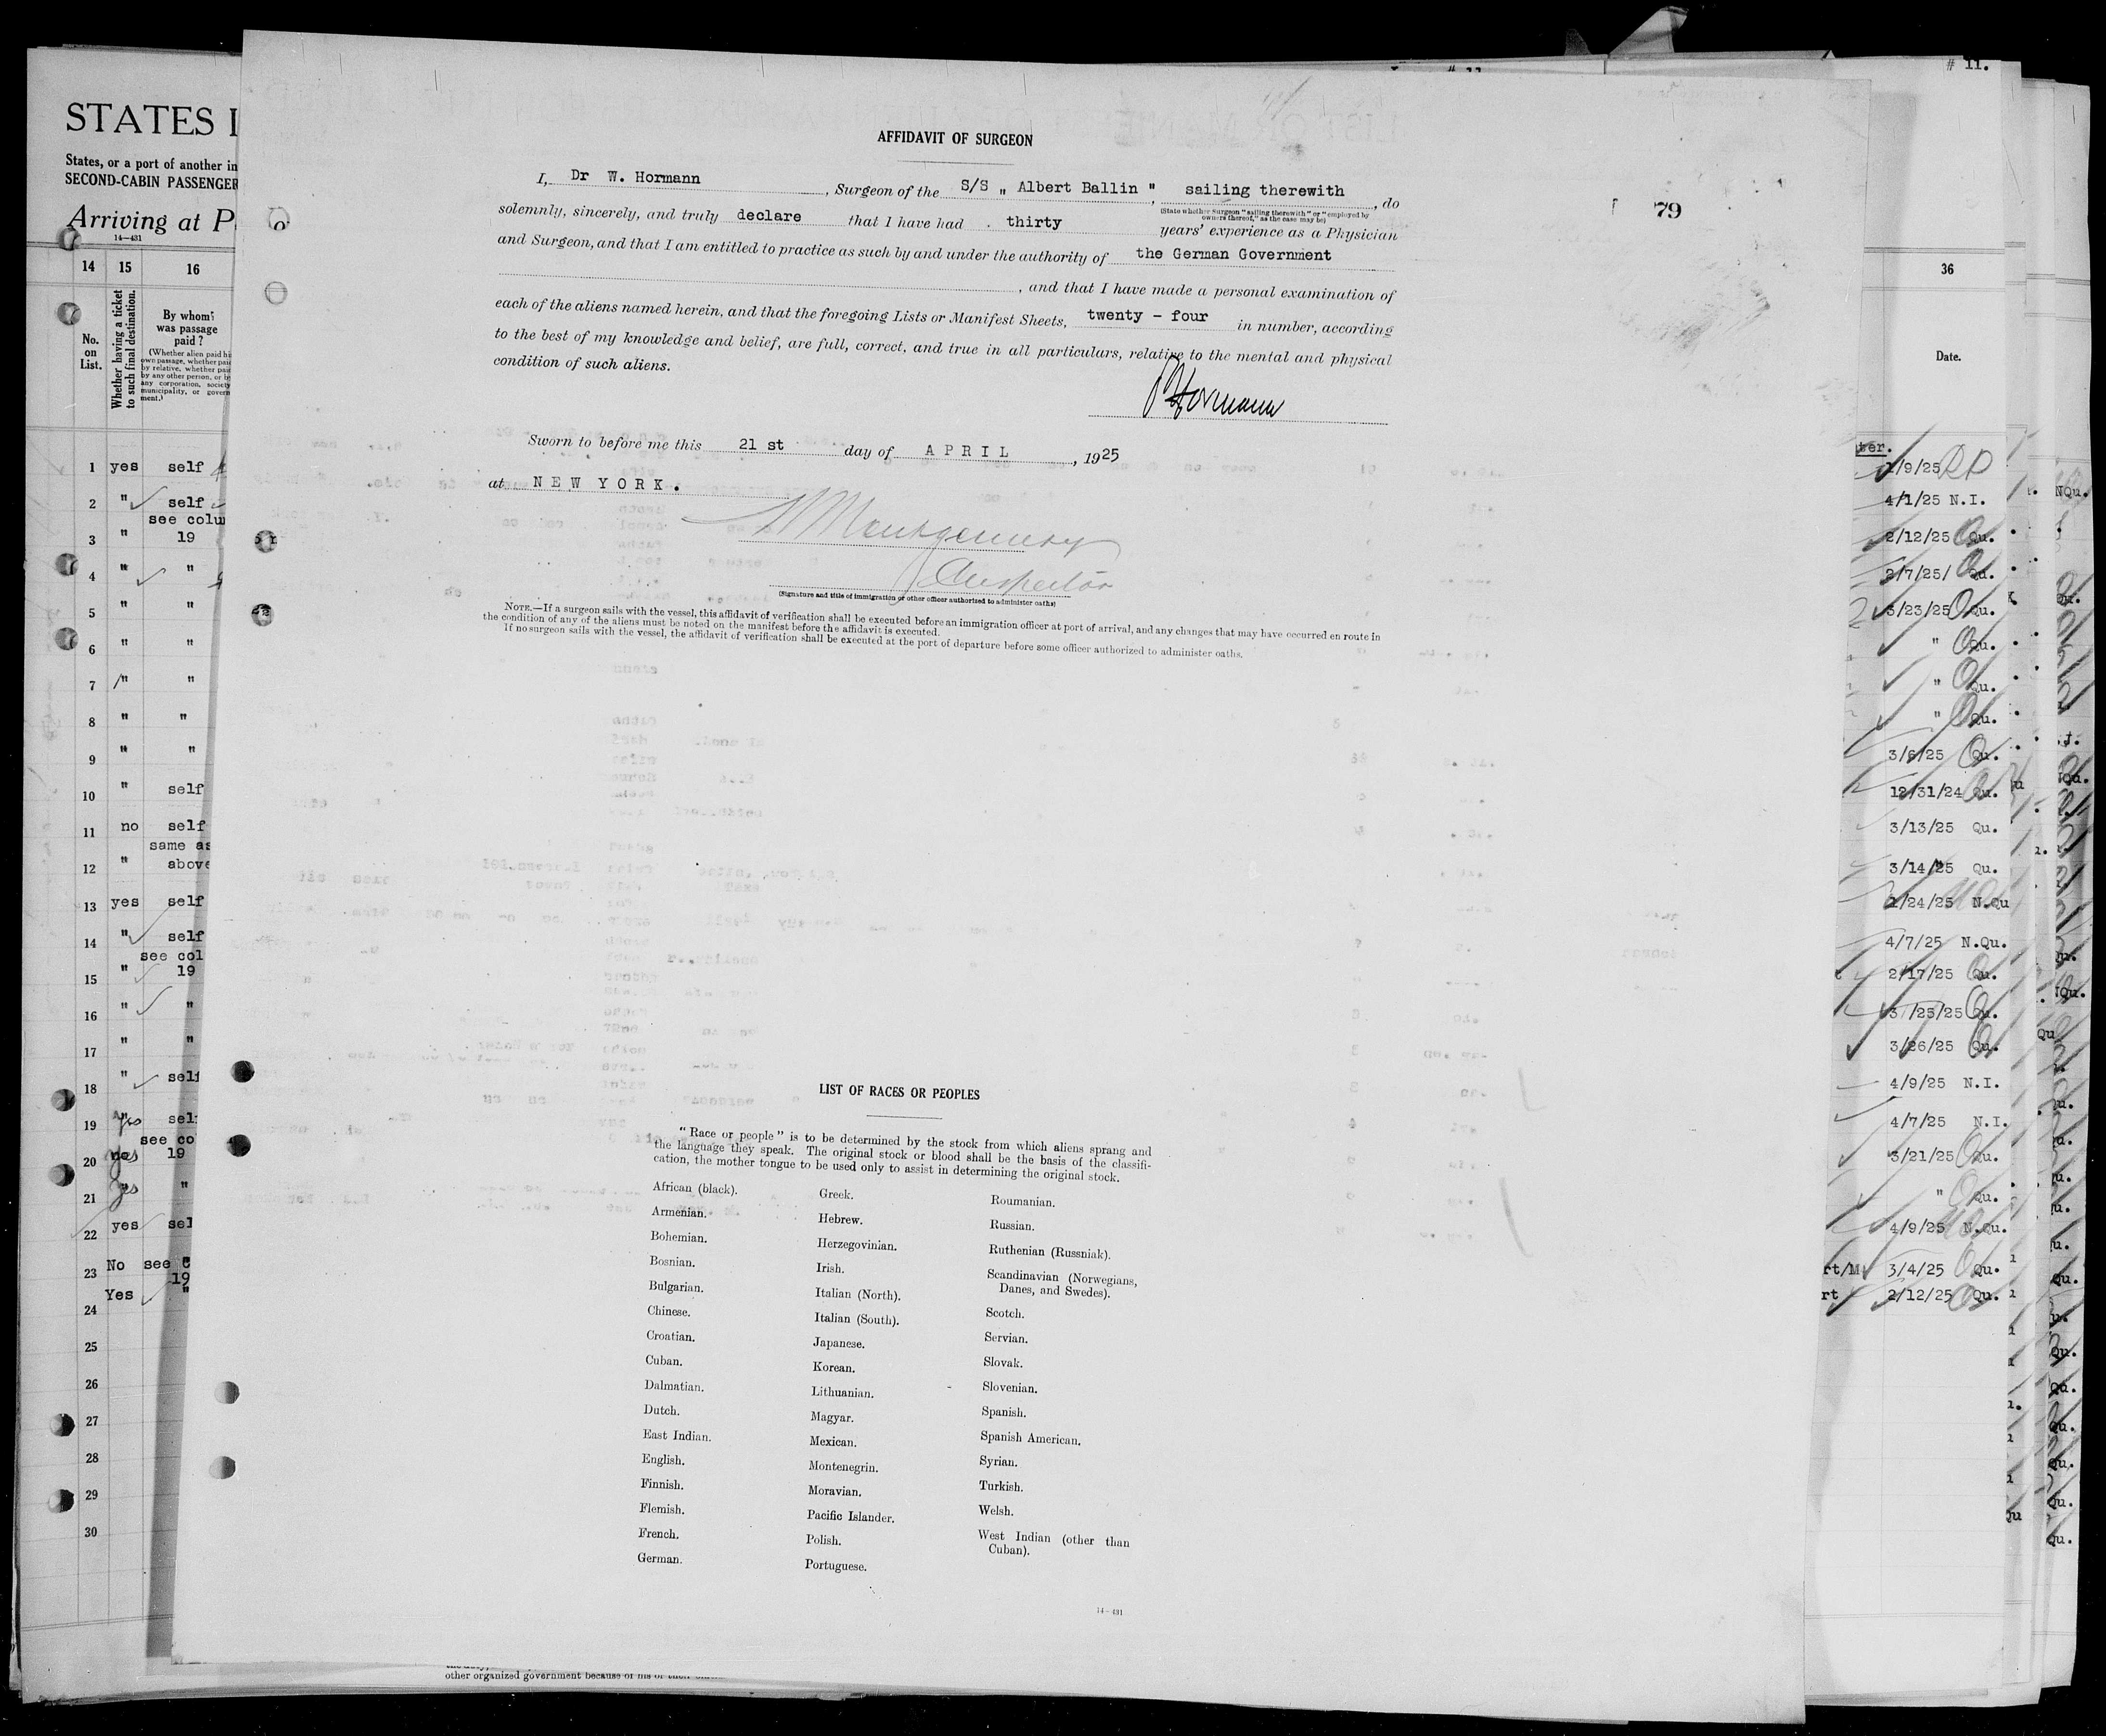 # 11.
STATES I
States, or a port of another in
SECOND-CABIN PASSENGER
Arriving at P
14—431
14 15 16
No. on List.
Whether having a ticket to such final destination.
By whom
was passage
paid ?
(Whether alien paid hi
own passage, whether paid
by relative, whether paid
by any other person, or by
any corporation, society
municipality, or govern
ment.)
1 yes self
2 " self
see colu
3 " 19
4 " "
5 " "
6 " "
7 " "
8 " "
9 " "
10 " self
11 no self
same as
12 " above
13 yes self
14 " self
see col
15 " 19
16 " "
17 " "
18 " self
19 yes self
see co
20 yes 19
21 yes "
22 yes sel
23 No see c
19
24 Yes "
25
26
27
28
29
30
AFFIDAVIT OF SURGEON
79
I, Dr W. Hormann, Surgeon of the S/S „ Albert Ballin ", sailing therewith, do
(State whether Surgeon "sailing therewith" or "employed by
owners thereof," as the case may be)
solemnly, sincerely, and truly declare that I have had thirty years' experience as a Physician
and Surgeon, and that I am entitled to practice as such by and under the authority of the German Government
, and that I have made a personal examination of
each of the aliens named herein, and that the foregoing Lists or Manifest Sheets, twenty - four in number, according
to the best of my knowledge and belief, are full, correct, and true in all particulars, relative to the mental and physical
condition of such aliens.
Hormann
Sworn to before me this 21 st day of APRIL, 1925
at NEW YORK.
Montgomery
Inspector
(Signature and title of immigration or other officer authorized to administer oaths)
NOTE.—If a surgeon sails with the vessel, this affidavit of verification shall be executed before an immigration officer at port of arrival, and any changes that may have occurred en route in
the condition of any of the aliens must be noted on the manifest before the affidavit is executed.
If no surgeon sails with the vessel, the affidavit of verification shall be executed at the port of departure before some officer authorized to administer oaths.
LIST OF RACES OR PEOPLES
"Race or people" is to be determined by the stock from which aliens sprang and
the language they speak. The original stock or blood shall be the basis of the classifi-
cation, the mother tongue to be used only to assist in determining the original stock.
African (black).
Armenian.
Bohemian.
Bosnian.
Bulgarian.
Chinese.
Croatian.
Cuban.
Dalmatian.
Dutch.
East Indian.
English.
Finnish.
Flemish.
French.
German.
Greek.
Hebrew.
Herzegovinian.
Irish.
Italian (North).
Italian (South).
Japanese.
Korean.
Lithuanian.
Magyar.
Mexican.
Montenegrin.
Moravian.
Pacific Islander.
Polish.
Portuguese.
Roumanian.
Russian.
Ruthenian (Russniak).
Scandinavian (Norwegians,
Danes, and Swedes).
Scotch.
Servian.
Slovak.
Slovenian.
Spanish.
Spanish American.
Syrian.
Turkish.
Welsh.
West Indian (other than
Cuban).
14—431
other organized government because of his or their
36
Date.
1/9/25
4/1/25 N.I.
2/12/25 Qu.
2/7/25/ Qu.
3/23/25 Qu.
" Qu.
" Qu.
" Qu.
3/6/25 Qu.
12/31/24 Qu.
3/13/25 Qu.
3/14/25 Qu.
1/24/25 N.Qu
4/7/25 N.Qu.
2/17/25 Qu.
3/25/25 Qu.
3/26/25 Qu.
4/9/25 N.I.
4/7/25 N.I.
3/21/25 Qu.
" Qu.
4/9/25 N.Qu.
3/4/25 Qu.
2/12/25 Qu.